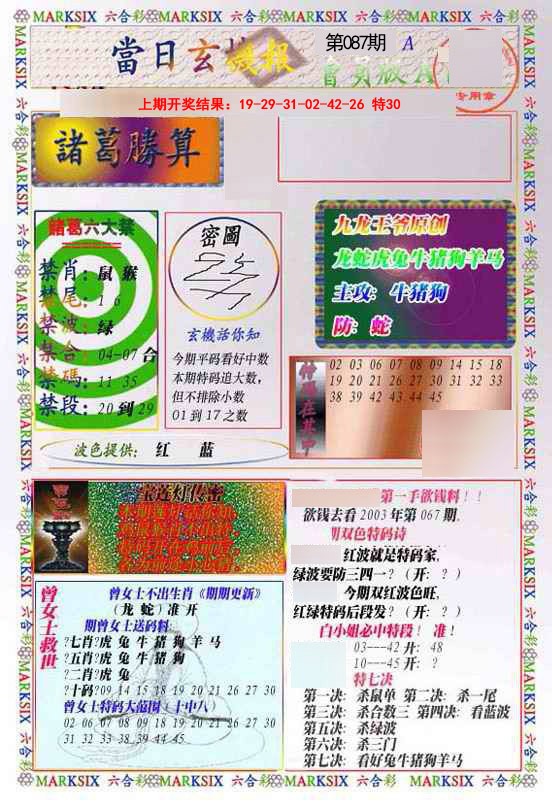 MARKSIX 六合彩 MARKSIX 六合彩 MARKSIX 六合彩 MARKSIX 六合彩 MARKSIX
當日玄機报
第087期 A
會員版A
专用章
上期开奖结果：19-29-31-02-42-26 特30
諸葛勝算
諸葛六大禁
禁肖：鼠 猴
禁尾：1 6
禁波：绿
禁合：04-07 合
禁碼：11 35
禁段：20 到 29
密圖
玄機話你知
今期平码看好中数
本期特码追大数，
但不排除小数
01 到 17 之数
九龙王爷原创
龙蛇虎兔牛猪狗羊马
主攻：牛猪狗
防：蛇
特碼在其中
02 03 06 07 08 09 14 15 18
19 20 21 26 27 30 31 32 33
38 39 42 43 44 45
波色提供： 红 蓝
宝莲灯传密
曾女士救世
曾女士不出生肖《期期更新》
（龙 蛇）准 开
期曾女士送码料:
?七肖?虎 兔 牛 猪 狗 羊 马
?五肖?虎 兔 牛 猪 狗
?二肖?虎 兔
?十码?09 14 15 18 19 20 21 26 27 30
曾女士特码大范围（十中八）
02 06 07 08 09 18 19 20 21 26 27 30
31 32 33 38 39 44 45
第一手欲钱料！！
欲钱去看 2003 年第 067 期.
期双色特码诗
红波就是特码家，
绿波要防三四一？（开：？）
今期双红波色旺，
红绿特码后段发？（开：？）
白小姐必中特段！ 准！
03---42 开: 48
10---45 开: ?
特七决
第一决: 杀鼠单 第二决: 杀一尾
第三决: 杀合数三 第四决: 看蓝波
第五决: 杀绿波
第六决: 杀三门
第七决: 看好兔牛猪狗羊马
MARKSIX 六合彩 MARKSIX 六合彩 MARKSIX 六合彩 MARKSIX 六合彩 MARKSIX